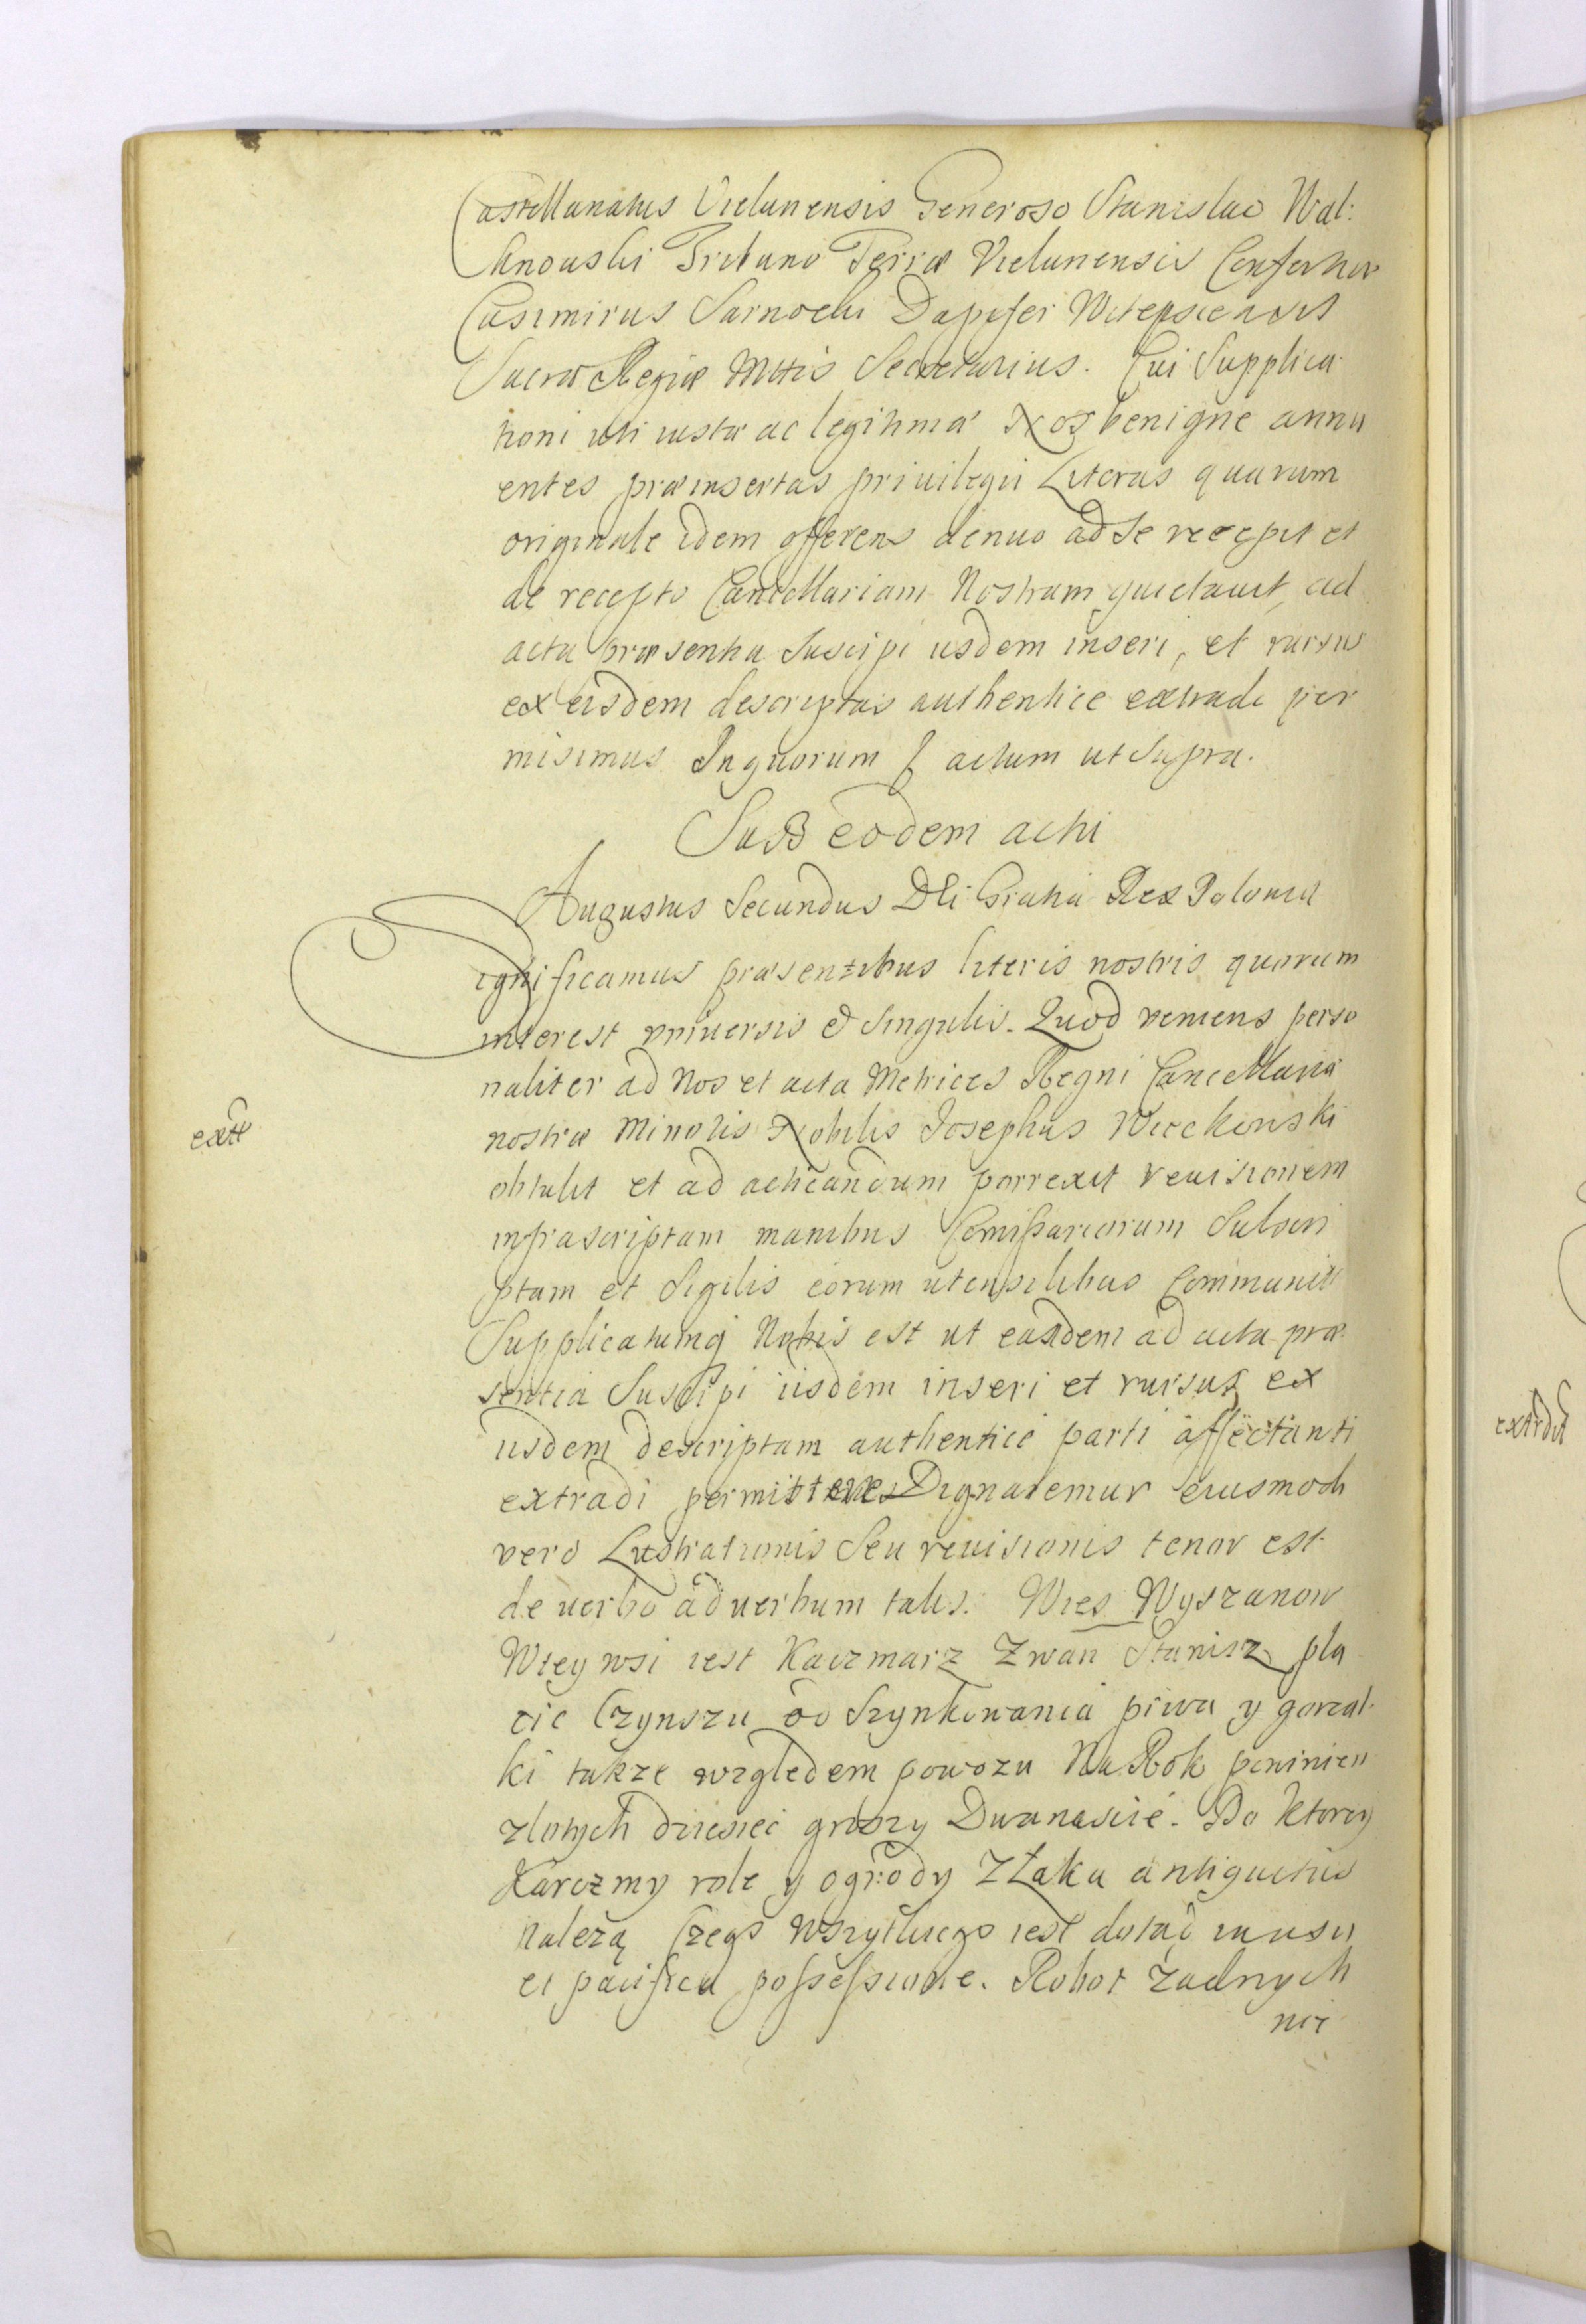 Castellanatus Vielunensis Generoso Stanislao Wal:
knouski Tribuno Terræ Vielunensis Confertur
Casimirus Sarnocki Dapifer Witepscensis
Sacræ Regiæ Mttis Secretarius. Cui Supplica
tioni uti iustæ ac legitimæ Nos benigne annu
entes præinsertas priuilegii Literas quarum
originale idem offerens denuo ad se recepit et
de recepto Cancellariam Nostram quietauit, ad
acta præsentia Suscipi iisdem inseri, et rursus
ex eisdem descriptas authentice extradi per
misimus Inquorum f actum ut Supra.
Sub eodem acti
Augustus Secundus Dei Gratia Rex Poloniæ
Significamus præsentibus literis nostris quorum
interest vniuersis et Singulis. Quod veniens perso
naliter ad Nos et acta Metrices Regni Cancellariæ
nostræ Minoris Nobilis Josephus Wieckowski
obtulit et ad acticandum porrexit reuisionem
infrascriptam manibus Comissariorum Subscri
ptam et Sigilis eorum utensilibus Communit
Supplicatumq Nobis est ut eandem ad acta præ
sentia Suscipi iisdem inseri et rursus ex
iisdem descriptam authentice parti affectanti
extradi permittere Dignaremur eiusmodi
vero Lustrationis Seu reuisionis tenor est
de uerbo ad uerbum talis. Wies Wyszanow
Wtey wsi iest Kaczmarz Zwan Stanisz pła
cic Czynszu od Szynkowania piwa y gorzał
ki takze względem powozu Na Rok powinien
zlotych dziesiec groszy Dwanascie. Do ktorey
Karczmy role y ogrody Z Łaka antiquitus
należą Czego wszytkiego iest dotąd in usu
et pacifica possessione. Robot żadnych
nie
extr
extrdit